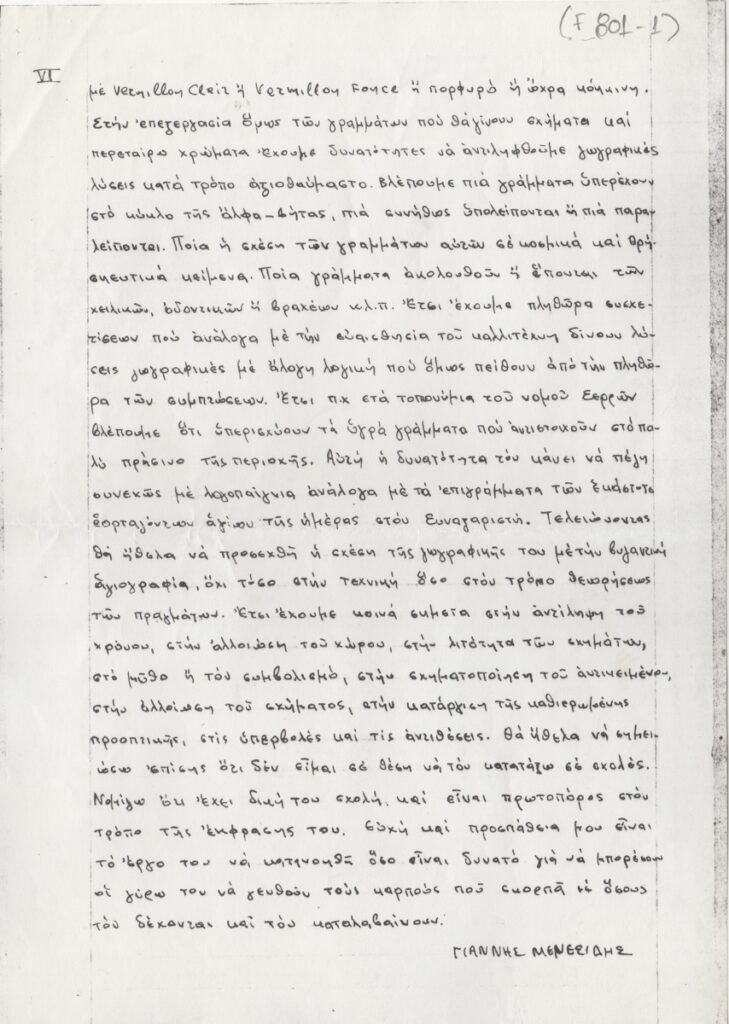 (F 801-1)
VI
μὲ Vermillon Clair ἤ Vermillon Fonce ἤ πορφυρό ἤ ὤχρα κόκκινη.
Στήν ἐπεξεργασία ὅμως τῶν γραμμάτων πού θά γίνουν σχήματα καί
περεταίρω χρώματα ἔχουμε δυνατότητες νά ἀντιληφθοῦμε ζωγραφικές
λύσεις κατά τρόπο ἀξιοθαύμαστο. Βλέπουμε πιά γράμματα ὑπερέχουν
στό κύκλο τῆς ἄλφα-βήτας, πιά συνήθως ὑπολείπονται ἤ πιά παρα-
λείπονται. Ποία ἡ σχέση τῶν γραμμάτων αὐτῶν σέ κοσμικά καί θρη-
σκευτικά κείμενα. Ποία γράμματα ἀκολουθοῦν ἤ ἕπονται τῶν
χειλικῶν, ὀδοντικῶν ἤ βραχέων κ.λ.π. Ἔτσι ἔχουμε πληθώρα συσχε-
τίσεων πού ἀνάλογα μέ τήν εὐαισθησία τοῦ καλλιτέχνη δίνουν λύ-
σεις ζωγραφικές μέ ἄλογη λογική πού ὅμως πείθουν ἀπό τήν πληθώ-
ρα τῶν συμπτώσεων. Ἔτσι π.χ στά τοπονύμια τοῦ νομοῦ Σερρῶν
βλέπουμε ὅτι ὑπερισχύουν τά ὑγρά γράμματα πού ἀντιστοιχοῦν στό πο-
λύ πράσινο τῆς περιοχῆς. Αὐτή ἡ δυνατότητα τόν κάνει νά παίζη
συνεχῶς μέ λογοπαίγνια ἀνάλογα μέ τά ἐπιγράμματα τῶν ἑκάστοτε
ἑορταζόντων ἁγίων τῆς ἡμέρας στόν Συναξαριστή. Τελειώνοντας
θά ἤθελα νά προσεχθῆ ἡ σχέση τῆς ζωγραφικῆς του μέ τήν βυζαντινή
ἁγιογραφία, ὄχι τόσο στήν τεχνική ὅσο στόν τρόπο θεωρήσεως
τῶν πραγμάτων. Ἔτσι ἔχουμε κοινά σημεῖα στήν ἀντίληψη τοῦ
χρόνου, στήν ἀλλοίωση τοῦ χώρου, στήν λιτότητα τῶν σχημάτων,
στό μῦθο ἤ τόν συμβολισμό, στήν σχηματοποίηση τοῦ ἀντικειμένου,
στήν ἀλλοίωση τοῦ σχήματος, στήν κατάργιση τῆς καθιερωμένης
προοπτικῆς, στίς ὑπερβολές καί τίς ἀντιθέσεις. Θά ἤθελα νά σημει-
ώσω ἐπίσης ὅτι δέν εἶμαι σέ θέση νά τόν κατατάξω σέ σχολές.
Νομίζω ὅτι ἔχει δική του σχολή, καί εἶναι πρωτοπόρος στόν
τρόπο τῆς ἔκφρασης του. Εὐχή καί προσπάθεια μου εἶναι
τό ἔργο του νά κατανοηθῆ ὅσο εἶναι δυνατό γιά νά μπορέσουν
οἱ γύρω του νά γευθοῦν τούς καρπούς πού σκορπᾶ σέ ὅσους
τόν δέχονται καί τόν καταλαβαίνουν.
ΓΙΑΝΝΗΣ ΜΕΝΕΣΙΔΗΣ